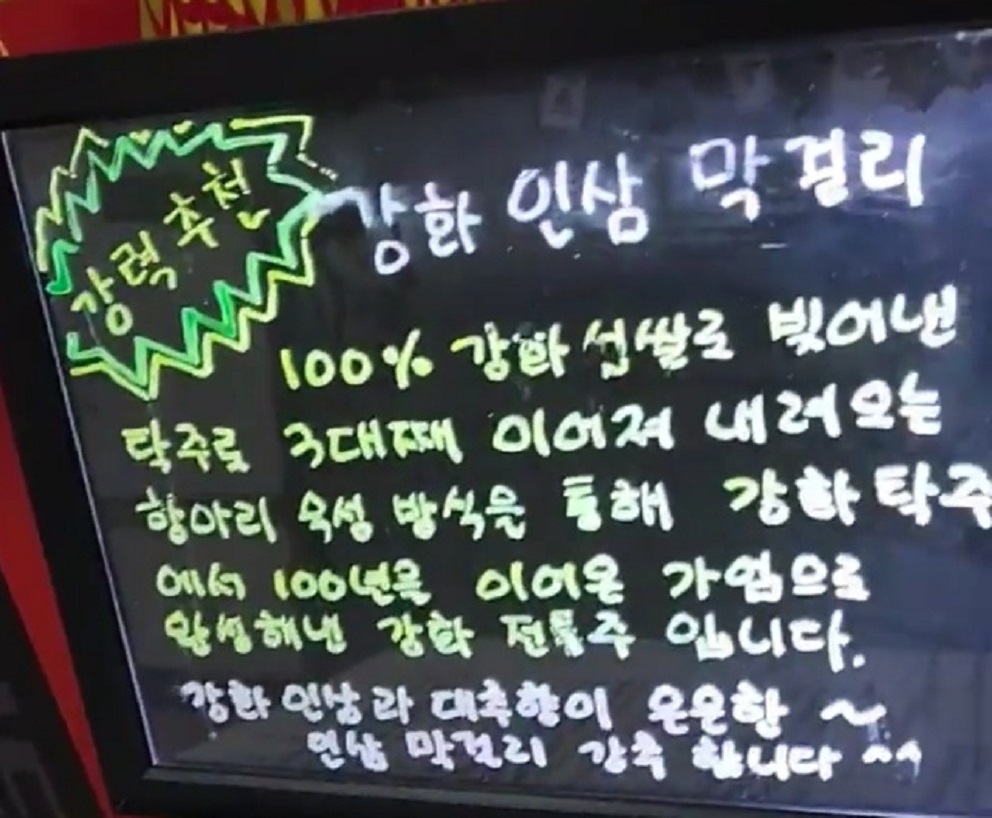 강력추천
강화 인삼 막걸리
100% 강화섬쌀로 빚어낸
탁주로 3대째 이어져 내려오는
항아리 숙성 방식을 통해 강화탁주
에서 100년을 이어온 가업으로
완성해낸 강화 전통주 입니다.
강화 인삼과 대추향이 은은한 ~
인삼 막걸리 강추 합니다 ^^